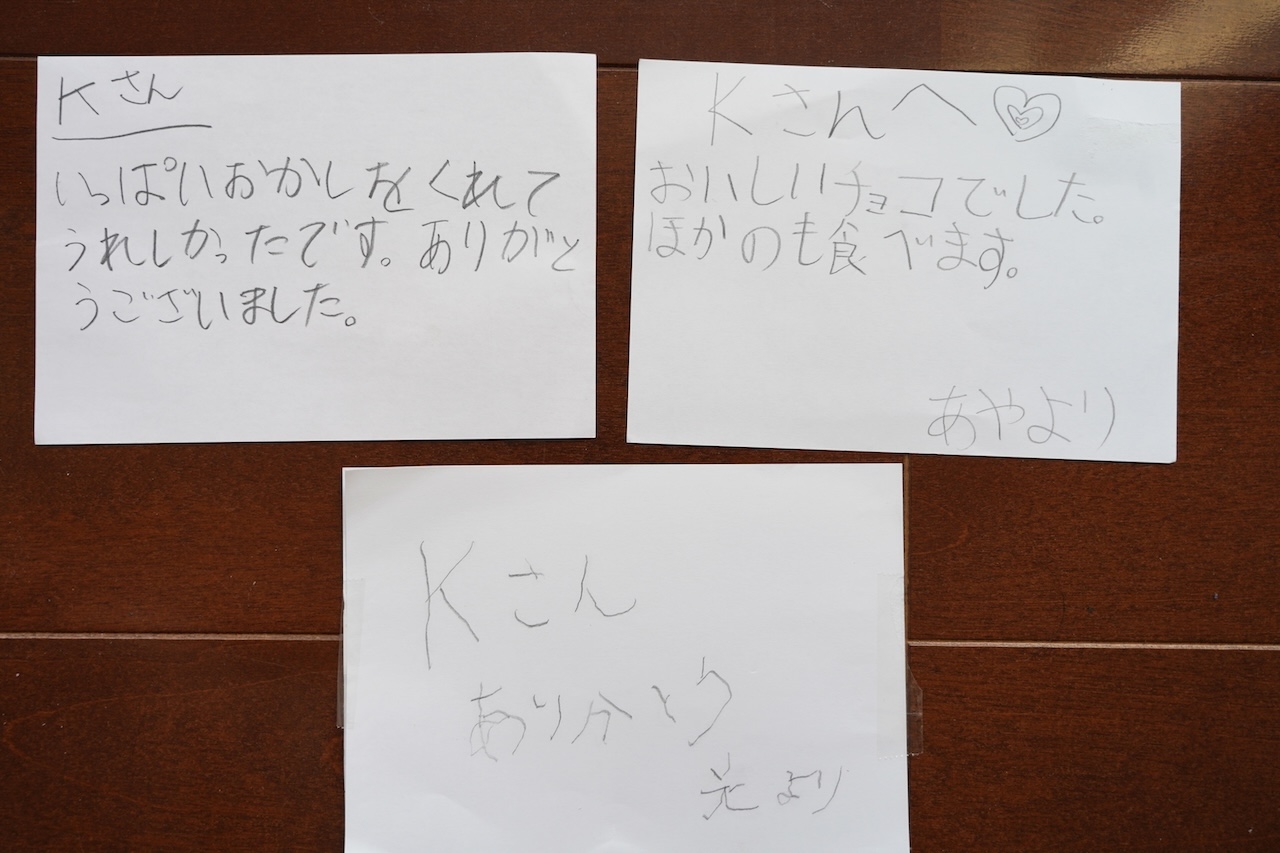 Kさん
いっぱいおかしをくれて
うれしかったです。ありがと
うございました。
Kさんへ
おいしいチョコでした。
ほかのも食べます。
あやより
Kさん
ありがとう
光より